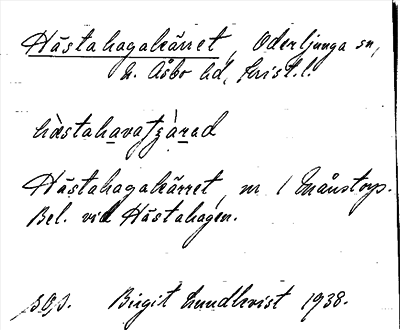 Hästahagakärret, Oderljunga sn,
N. Åsbo hd, Krist. l.
Hästahagakärret, nr 1 Månstorp.
Bel. vid Hästahagen.
Birgit Lundkvist 1938.